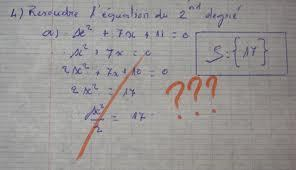 4) Resoudre l'équation du 2nd degré
a) x² + 7x + 11 = 0
x² + 7x = 0
2x² + 7x + 10 = 0
2x² = 17
x²/2 = 17
S: {17}
???